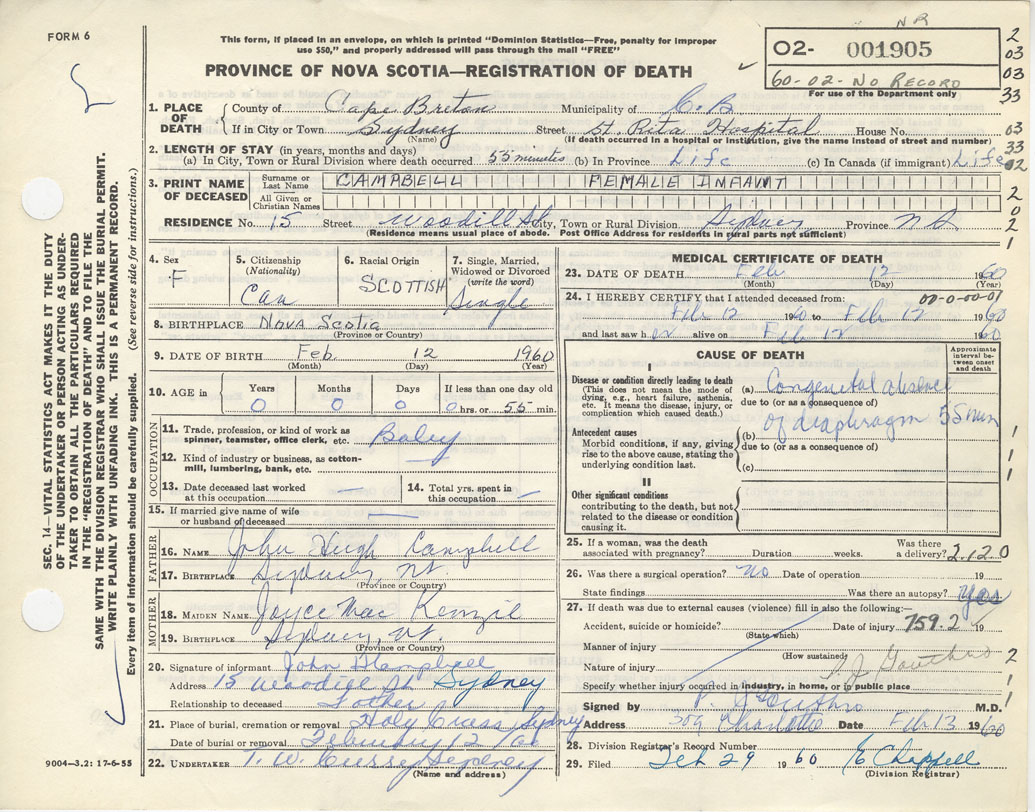 FORM 6
This form, if placed in an envelope, on which is printed "Dominion Statistics—Free, penalty for improper
use $50," and properly addressed will pass through the mail "FREE"
NR
PROVINCE OF NOVA SCOTIA—REGISTRATION OF DEATH
02- 001905
60-02- No RECORD
For use of the Department only
2
03
03
33
1. PLACE OF DEATH { County of Cape Breton Municipality of C.B.
If in City or Town Sydney Street St. Rita Hospital House No.
(Name) (If death occurred in a hospital or institution, give the name instead of street and number)
03
33
02
2. LENGTH OF STAY (in years, months and days)
(a) In City, Town or Rural Division where death occurred 55 minutes (b) In Province Life (c) In Canada (if immigrant) Life
3. PRINT NAME OF DECEASED
Surname or Last Name CAMPBELL FEMALE INFANT
All Given or Christian Names
2
0
2
1
RESIDENCE No. 15 Street Woodill St. City, Town or Rural Division Sydney Province NS
(Residence means usual place of abode. Post Office Address for residents in rural parts not sufficient)
4. Sex
F
5. Citizenship
(Nationality)
Can
6. Racial Origin
SCOTTISH
7. Single, Married,
Widowed or Divorced
(write the word)
Single
8. BIRTHPLACE Nova Scotia
(Province or Country)
9. DATE OF BIRTH Feb. 12 1960
(Month) (Day) (Year)
10. AGE in
Years Months Days If less than one day old
0 0 0 0 hrs. or 55 min.
OCCUPATION
11. Trade, profession, or kind of work as
spinner, teamster, office clerk, etc. Baby
12. Kind of industry or business, as cotton-
mill, lumbering, bank, etc. —
13. Date deceased last worked
at this occupation —
14. Total yrs. spent in
this occupation —
15. If married give name of wife
or husband of deceased —
FATHER
16. NAME John Hugh Campbell
17. BIRTHPLACE Sydney
(Province or Country)
MOTHER
18. MAIDEN NAME Joyce Mac Kenzie
19. BIRTHPLACE Sydney
(Province or Country)
20. Signature of informant John H Campbell
Address 15 Woodill St Sydney
Relationship to deceased Father
21. Place of burial, cremation or removal Holy Cross Sydney
Date of burial or removal February 12/60
22. UNDERTAKER T. W. Curry Sydney
(Name and address)
MEDICAL CERTIFICATE OF DEATH
23. DATE OF DEATH Feb 12 1960
(Month) (Day) (Year)
24. I HEREBY CERTIFY that I attended deceased from: 00-0-00-01
Feb 12 1960 to Feb 12 1960
and last saw h er alive on Feb 12 1960
CAUSE OF DEATH
Approximate
interval be-
tween onset
and death
I
Disease or condition directly leading to death
(This does not mean the mode of
dying, e.g., heart failure, asthenia,
etc. It means the disease, injury, or
complication which caused death.)
(a) Congenital absence
due to (or as a consequence of)
of diaphragm 55 min
Antecedent causes
Morbid conditions, if any, giving
rise to the above cause, stating the
underlying condition last.
(b)
due to (or as a consequence of)
(c)
1
1
1
II
Other significant conditions
contributing to the death, but not
related to the disease or condition
causing it.
25. If a woman, was the death
associated with pregnancy? Duration weeks. Was there
a delivery? 2.12.0
26. Was there a surgical operation? No Date of operation 19
State findings Was there an autopsy? Yes
27. If death was due to external causes (violence) fill in also the following:—
Accident, suicide or homicide? Date of injury 759.2 19
(State which)
Manner of injury
(How sustained)
Nature of injury
Specify whether injury occurred in industry, in home, or in public place
2
1
Signed by M.D.
Address 309 Charlotte Date Feb 13 1960
28. Division Registrar's Record Number
29. Filed Feb 29 1960 E Chappell
(Division Registrar)
SEC. 14—VITAL STATISTICS ACT MAKES IT THE DUTY
OF THE UNDERTAKER OR PERSON ACTING AS UNDER-
TAKER TO OBTAIN ALL THE PARTICULARS REQUIRED
IN THE "REGISTRATION OF DEATH" AND TO FILE THE
SAME WITH THE DIVISION REGISTRAR WHO SHALL ISSUE THE BURIAL PERMIT.
WRITE PLAINLY WITH UNFADING INK. THIS IS A PERMANENT RECORD.
Every item of information should be carefully supplied. (See reverse side for instructions.)
9004—3.2: 17-6-55